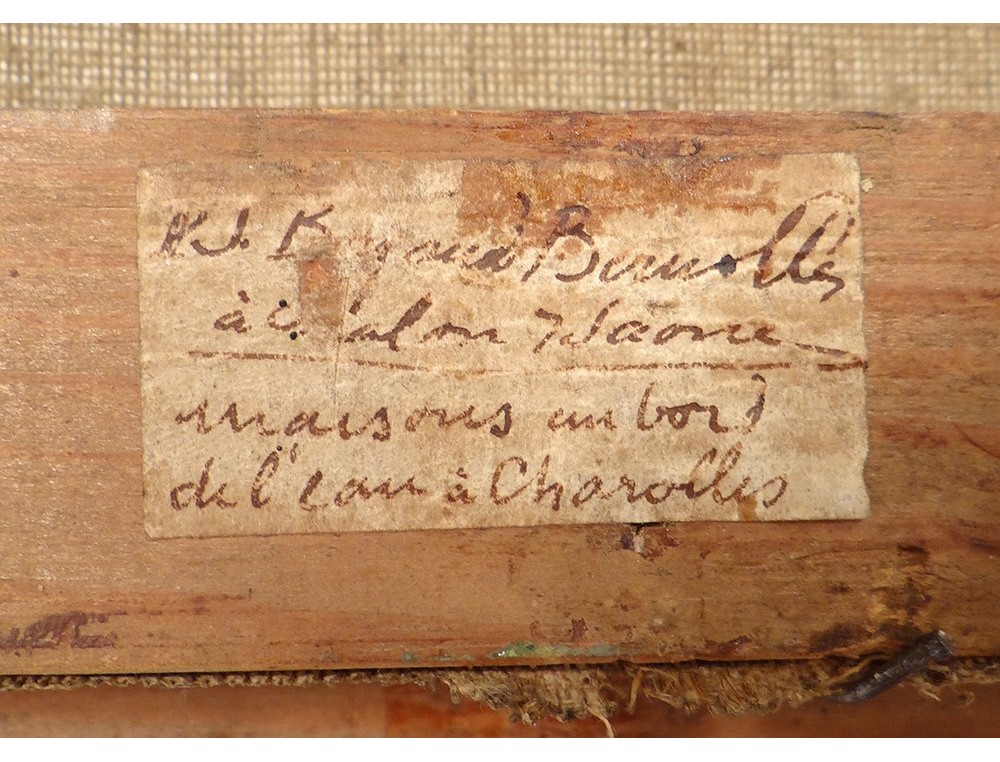 à Bernolles
à Chalon s/Saone
maisons au bord
de l'eau à Charolles